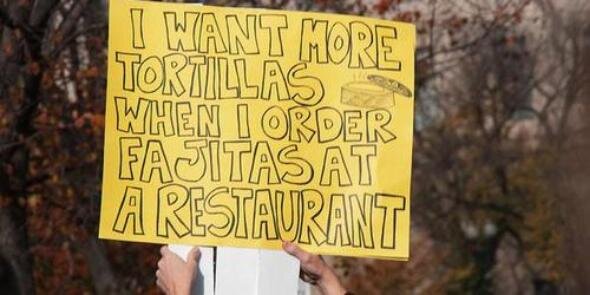 I WANT MORE
TORTILLAS
WHEN I ORDER
FAJITAS AT
A RESTAURANT